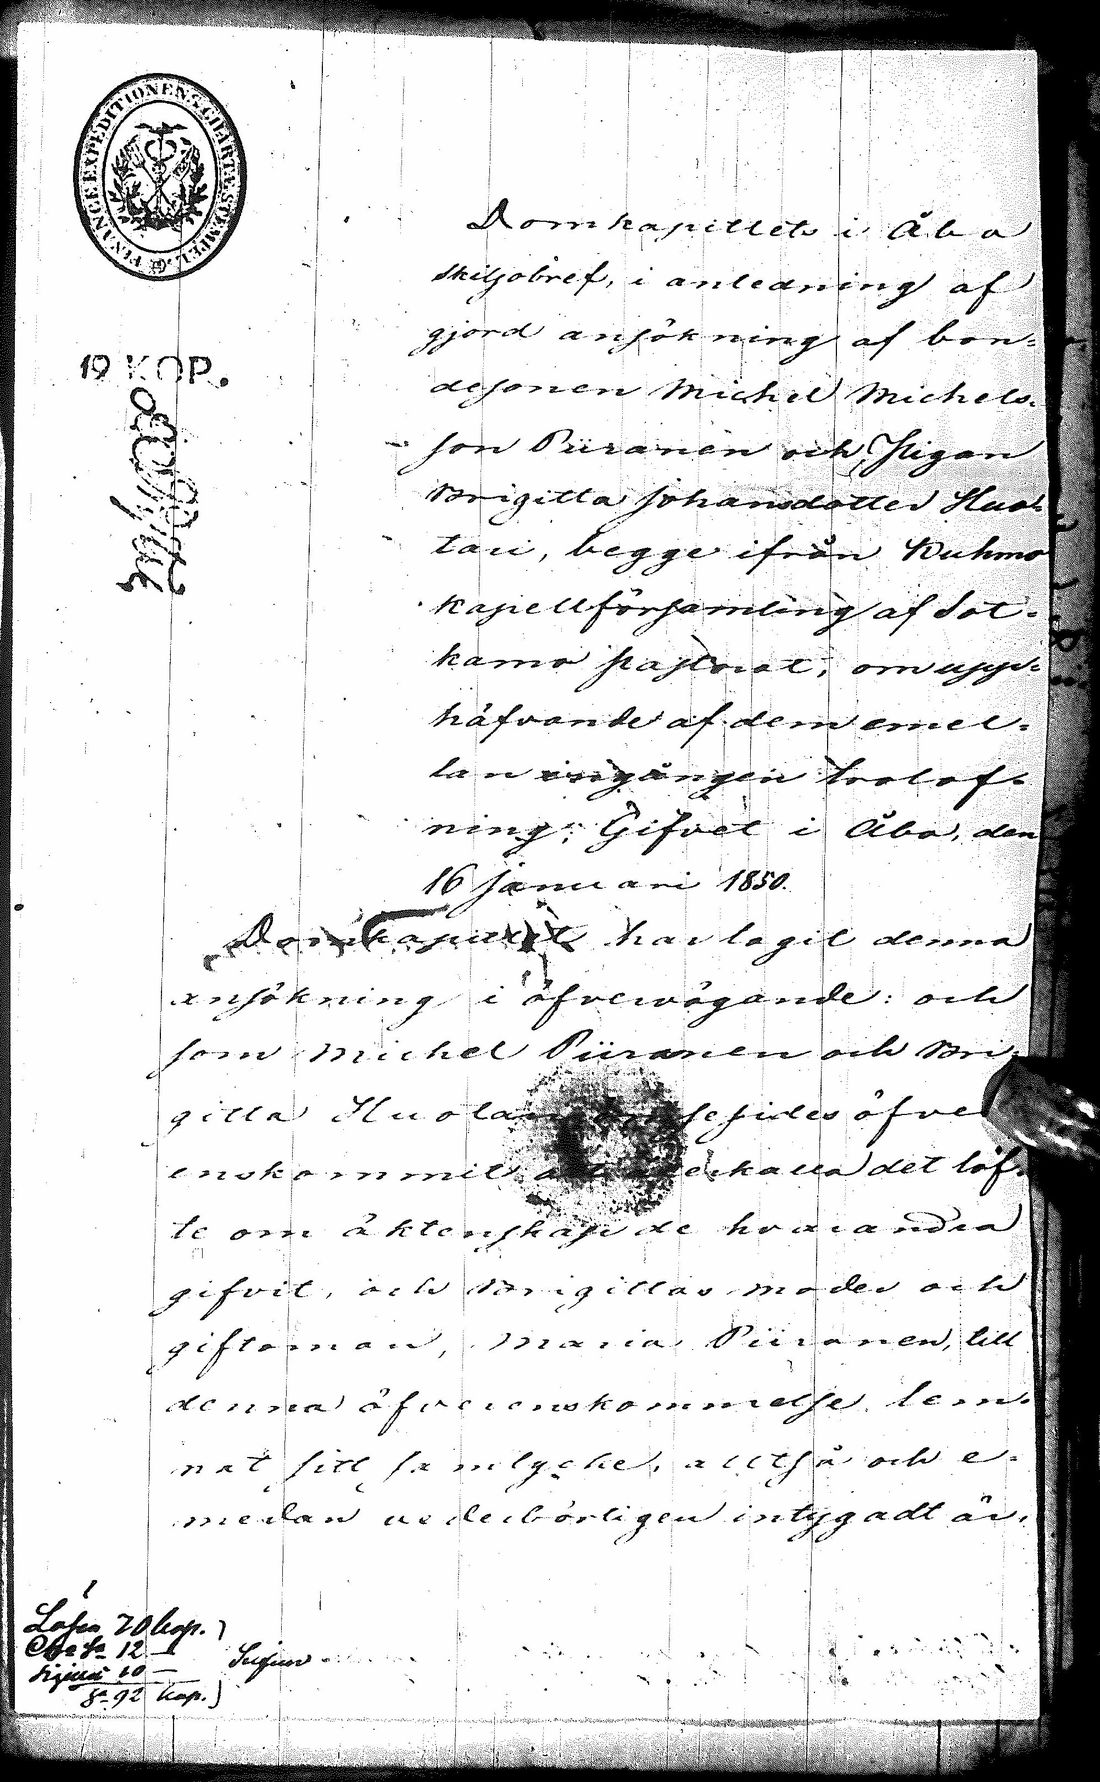 FINANCE EXPEDITIONENS CHARTÆ STEMPEL
12 KOP.
Domkapitlets i Åbo
skiljobref, i anledning af
gjord ansökning af bon-
desonen Michel Michels-
son Piiranen och Pigan
Brigitta Johansdotter Huo-
tari, begge ifrån Kuhmo
kapellförsamling af Sot-
kamo pastorat, om upp-
häfvande af dem emel-
lan ingången trolof-
ning; Gifvet i Åbo, den
16 Januari 1850.
Domkapitlet har tagit denna
ansökning i öfvervägande: och
som Michel Piiranen och Bri-
gitta Huotari ömsesides öfver-
enskommit att återkalla det löf-
te om äktenskap de hvarandra
gifvit, och Brigittas moder och
giftoman, Maria Piiranen, till
denna öfverenskommelse lem-
nat sitt samtycke, alltså och e-
medan vederbörligen intygadt är,
Lösen 70 kop.)
Cha Sr 12 —
Sigillet 10 —
Sr 92 kop.)